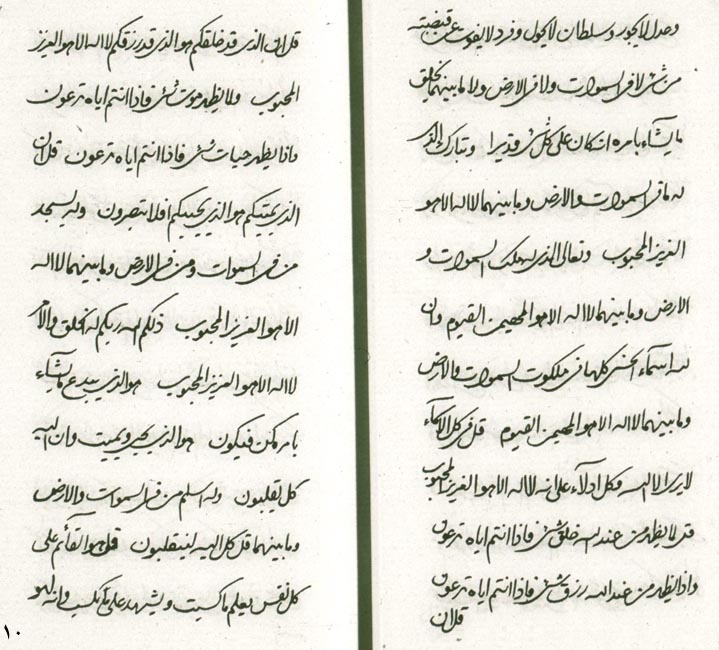 وعدل لا يجور وسلطان لا يحول وفرد لا يفوت عن قبضته
من شئ لا فى السموات ولا فى الارض ولا ما بينهما يخلق
ما يشاء بامره انه كان على كل شئ قديرا وتبارك الذى
له ما فى السموات والارض وما بينهما لا اله الا هو
العزيز المحبوب وتعالى الذى له ملك السموات و
الارض وما بينهما لا اله الا هو المهيمن القيوم وان
له اسماء الحسنى كلها فى ملكوت السموات والارض
وما بينهما لا اله الا هو المهيمن القيوم قل فى كل الاسماء
لا يرى الا الله وكل ادلاء على انه لا اله الا هو العزيز المحبوب
قل لا يظهر من عند الله خلق شئ فاذا انتم اياه تدعون
واذا يظهر من عند الله رزق شئ فاذا انتم اياه تدعون
قل ان
قل ان الذى قد خلقكم هو الذى قد رزقكم لا اله الا هو العزيز
المحبوب ولا يظهر موت شئ فاذا انتم اياه تدعون
واذا يظهر حيات شئ فاذا انتم اياه تدعون قل ان
الذى يميتكم هو الذى يحييكم افلا تبصرون وله يسجد
من فى السموات ومن فى الارض وما بينهما لا اله
الا هو العزيز المحبوب ذلكم الله ربكم له الخلق والامر
لا اله الا هو العزيز المحبوب هو الذى يبدع ما يشاء
بامره كن فيكون هو الذى يحيى ويميت وان اليه
كل يقلبون وله اسلم من فى السموات والارض
وما بينهما قل كل اليه لينقلبون قل هو القائم على
كل نفس يعلم ما كسبت ويشهد على ما تكسب وانه لهو
١٠